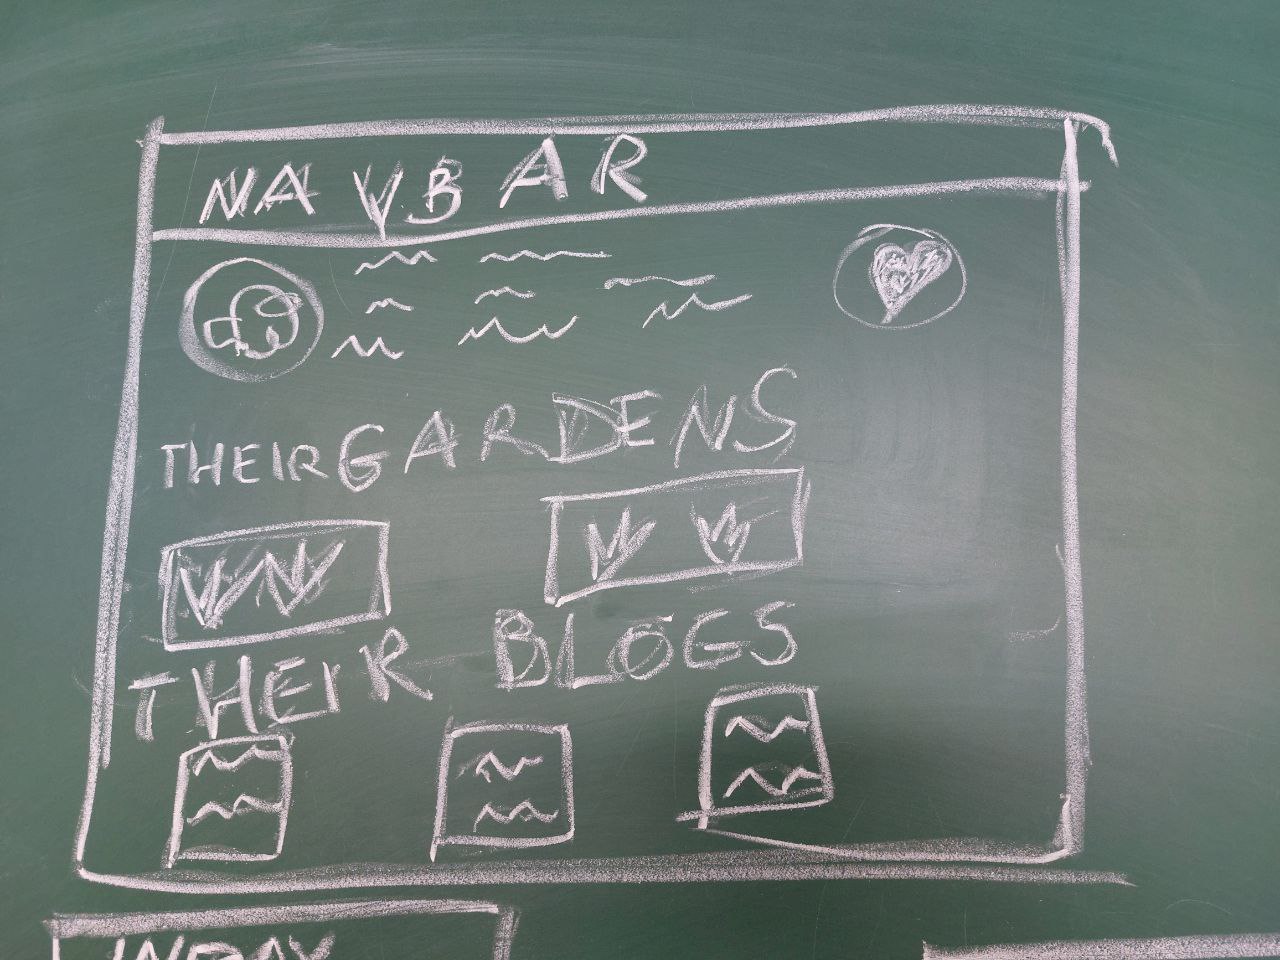 NAVBAR
THEIR GARDENS
THEIR BLOGS